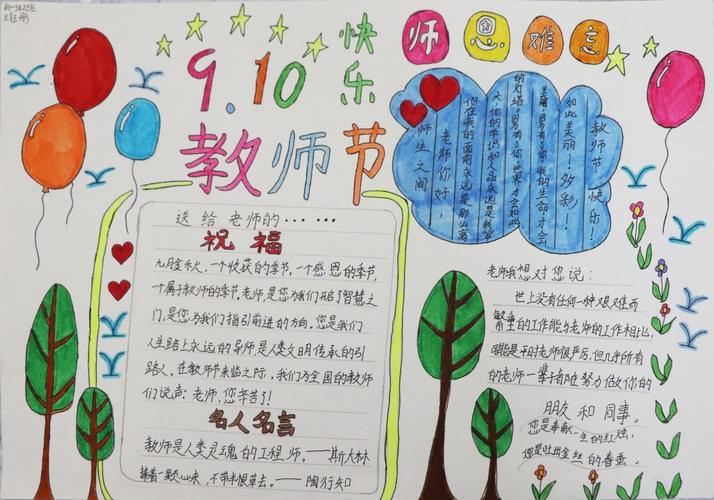 9.10
快乐
教师节
师恩难忘
师生之间
老师你好,
你在我的面前永远是那么高
大,你的学识和人品永远是我最
的灯塔。因为有了你,世界才会如此
美丽!因为有了你,我的生命才会
如此美丽!多彩!
教师节快乐!
送给老师的······
祝福
九月金秋,一个收获的季节,一个感恩的季节,
一个属于教师的季节。老师,是您为我们开启了智慧之
门,是您为我们指引前进的方向。您是我们
人生路上永远的导师是人类文明传承的引
路人。在教师节来临之际,我们为全国的教师
们说声:老师,您辛苦了!
名人名言
教师是人类灵魂的工程师。——斯大林
捧着一颗心来,不带半根草去。——陶行知
老师我想对您说:
世上没有任何一种艰难而
繁重的工作能与老师的工作相比,
老师很严厉但几乎所有
的老师一辈子都在努力做你的
朋友和同事。
您是奉献一生的红烛,
您是吐出金丝的春蚕。